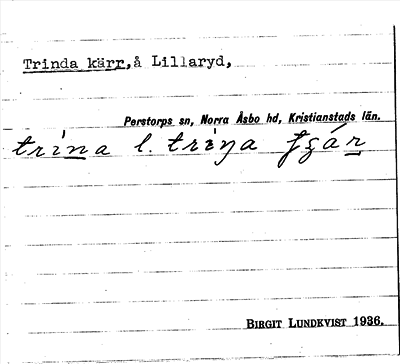 Trinda kärr, å Lillaryd,
Perstorps sn, Norra Åsbo hd, Kristianstads län.
trina l. triŋa
BIRGIT LUNDKVIST 1936.